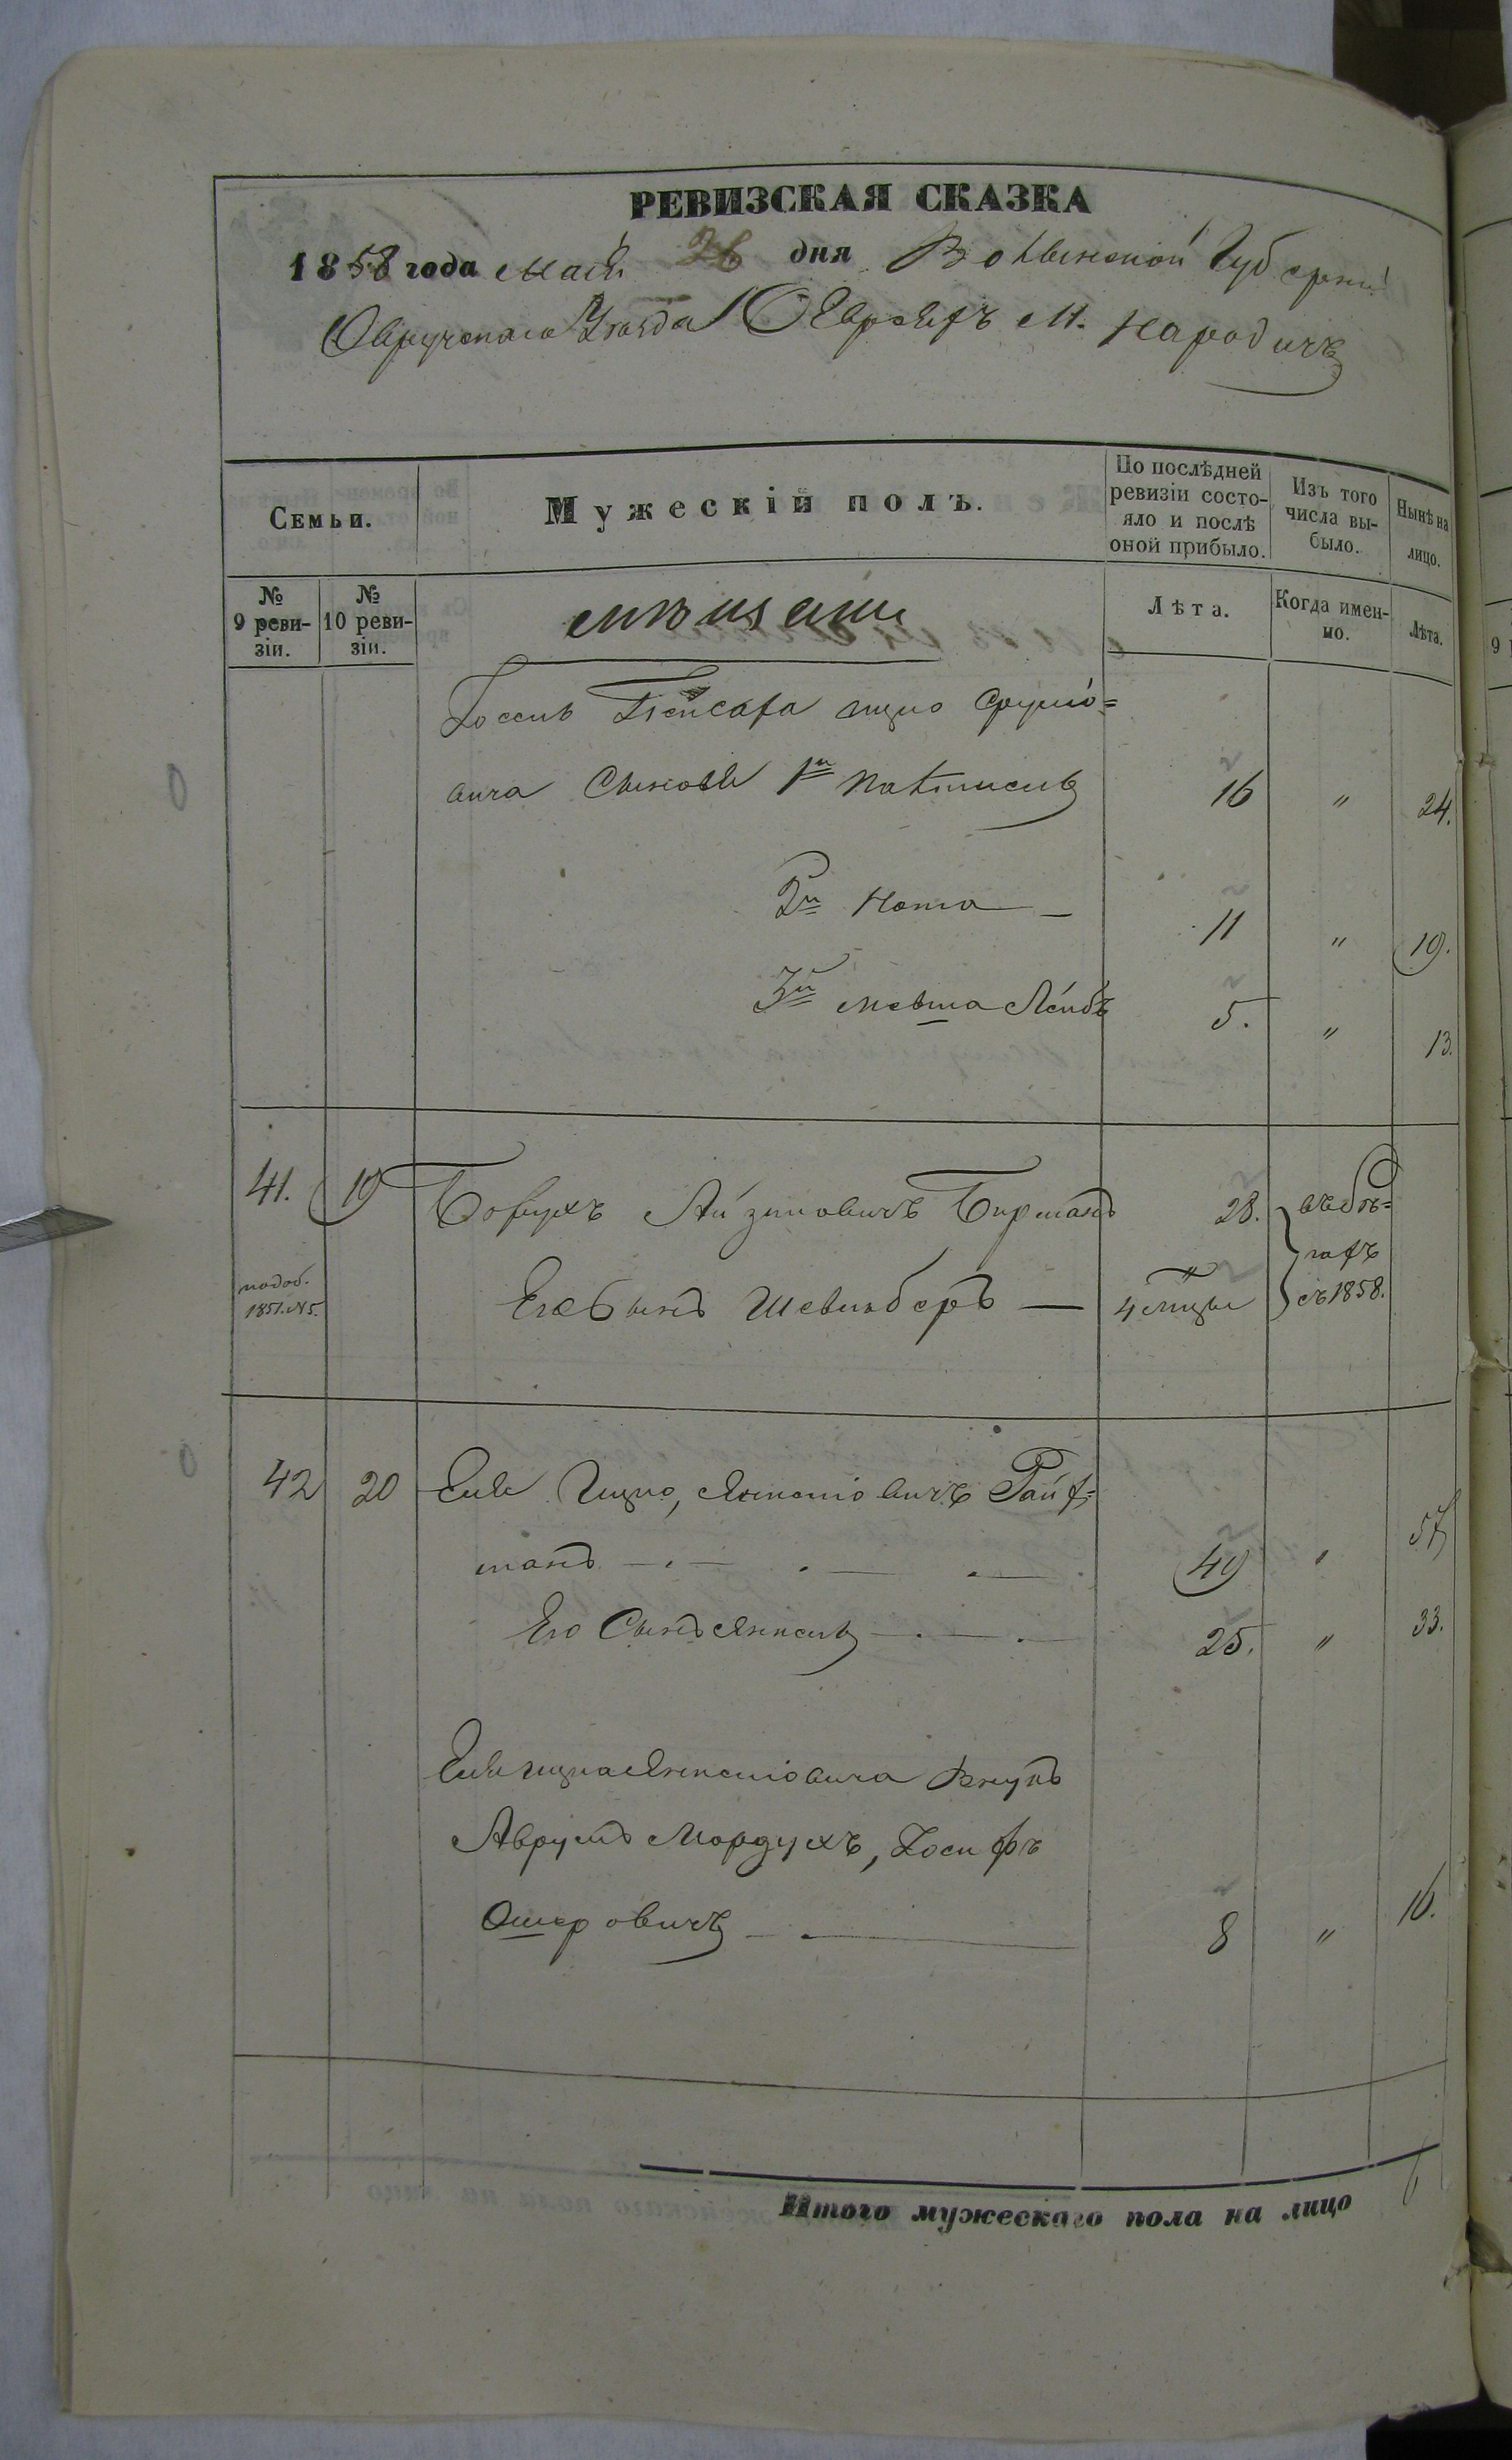 РЕВИЗСКАЯ СКАЗКА
1858 года Мая 26 дня Волынской Губернiи
Овручскаго Уѣзда О Евреяхъ М. Народичъ
Семьи.
Мужескiй полъ.
По послѣдней ревизiи состо-
яло и послѣ
оной прибыло.
Изъ того
числа вы-
было.
Нынѣ на
лицо.
№
9 реви-
зiи.
№
10 реви-
зiи.
мѣщане
Лѣта.
Когда имен-
но.
Лѣта.
Iосель Ицко Срулiо=
вича Сыновья 1й 16 " 24.
2й Нота 11 " 19.
3й Мевша Лейбъ 5. " 13.
41. 19 Борухъ Айзиковичъ Бирманъ 28. въ бѣ=
гахъ
1851. №5.
Его Сынъ Шевельберъ 4 мѣсцы съ 1858.
42 20 Еля Ицко, Янкелiовичъ Райх=
манъ 49 " 57
Его Сынъ Янкель 25. " 33.
Еля Ицка Янкелiовича Внукъ
Аврумъ Мордухъ, Iосифъ
Ошеровичъ 8 " 16.
Итого мужескаго пола на лицо 6